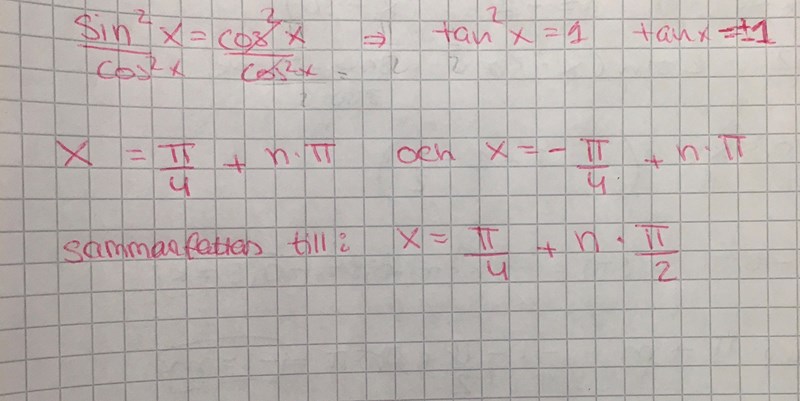 sin²x/cos²x = cos²x/cos²x ⇒ tan²x = 1 tanx = ±1
x = π/4 + n·π och x = -π/4 + n·π
sammanfattas till: x = π/4 + n·π/2